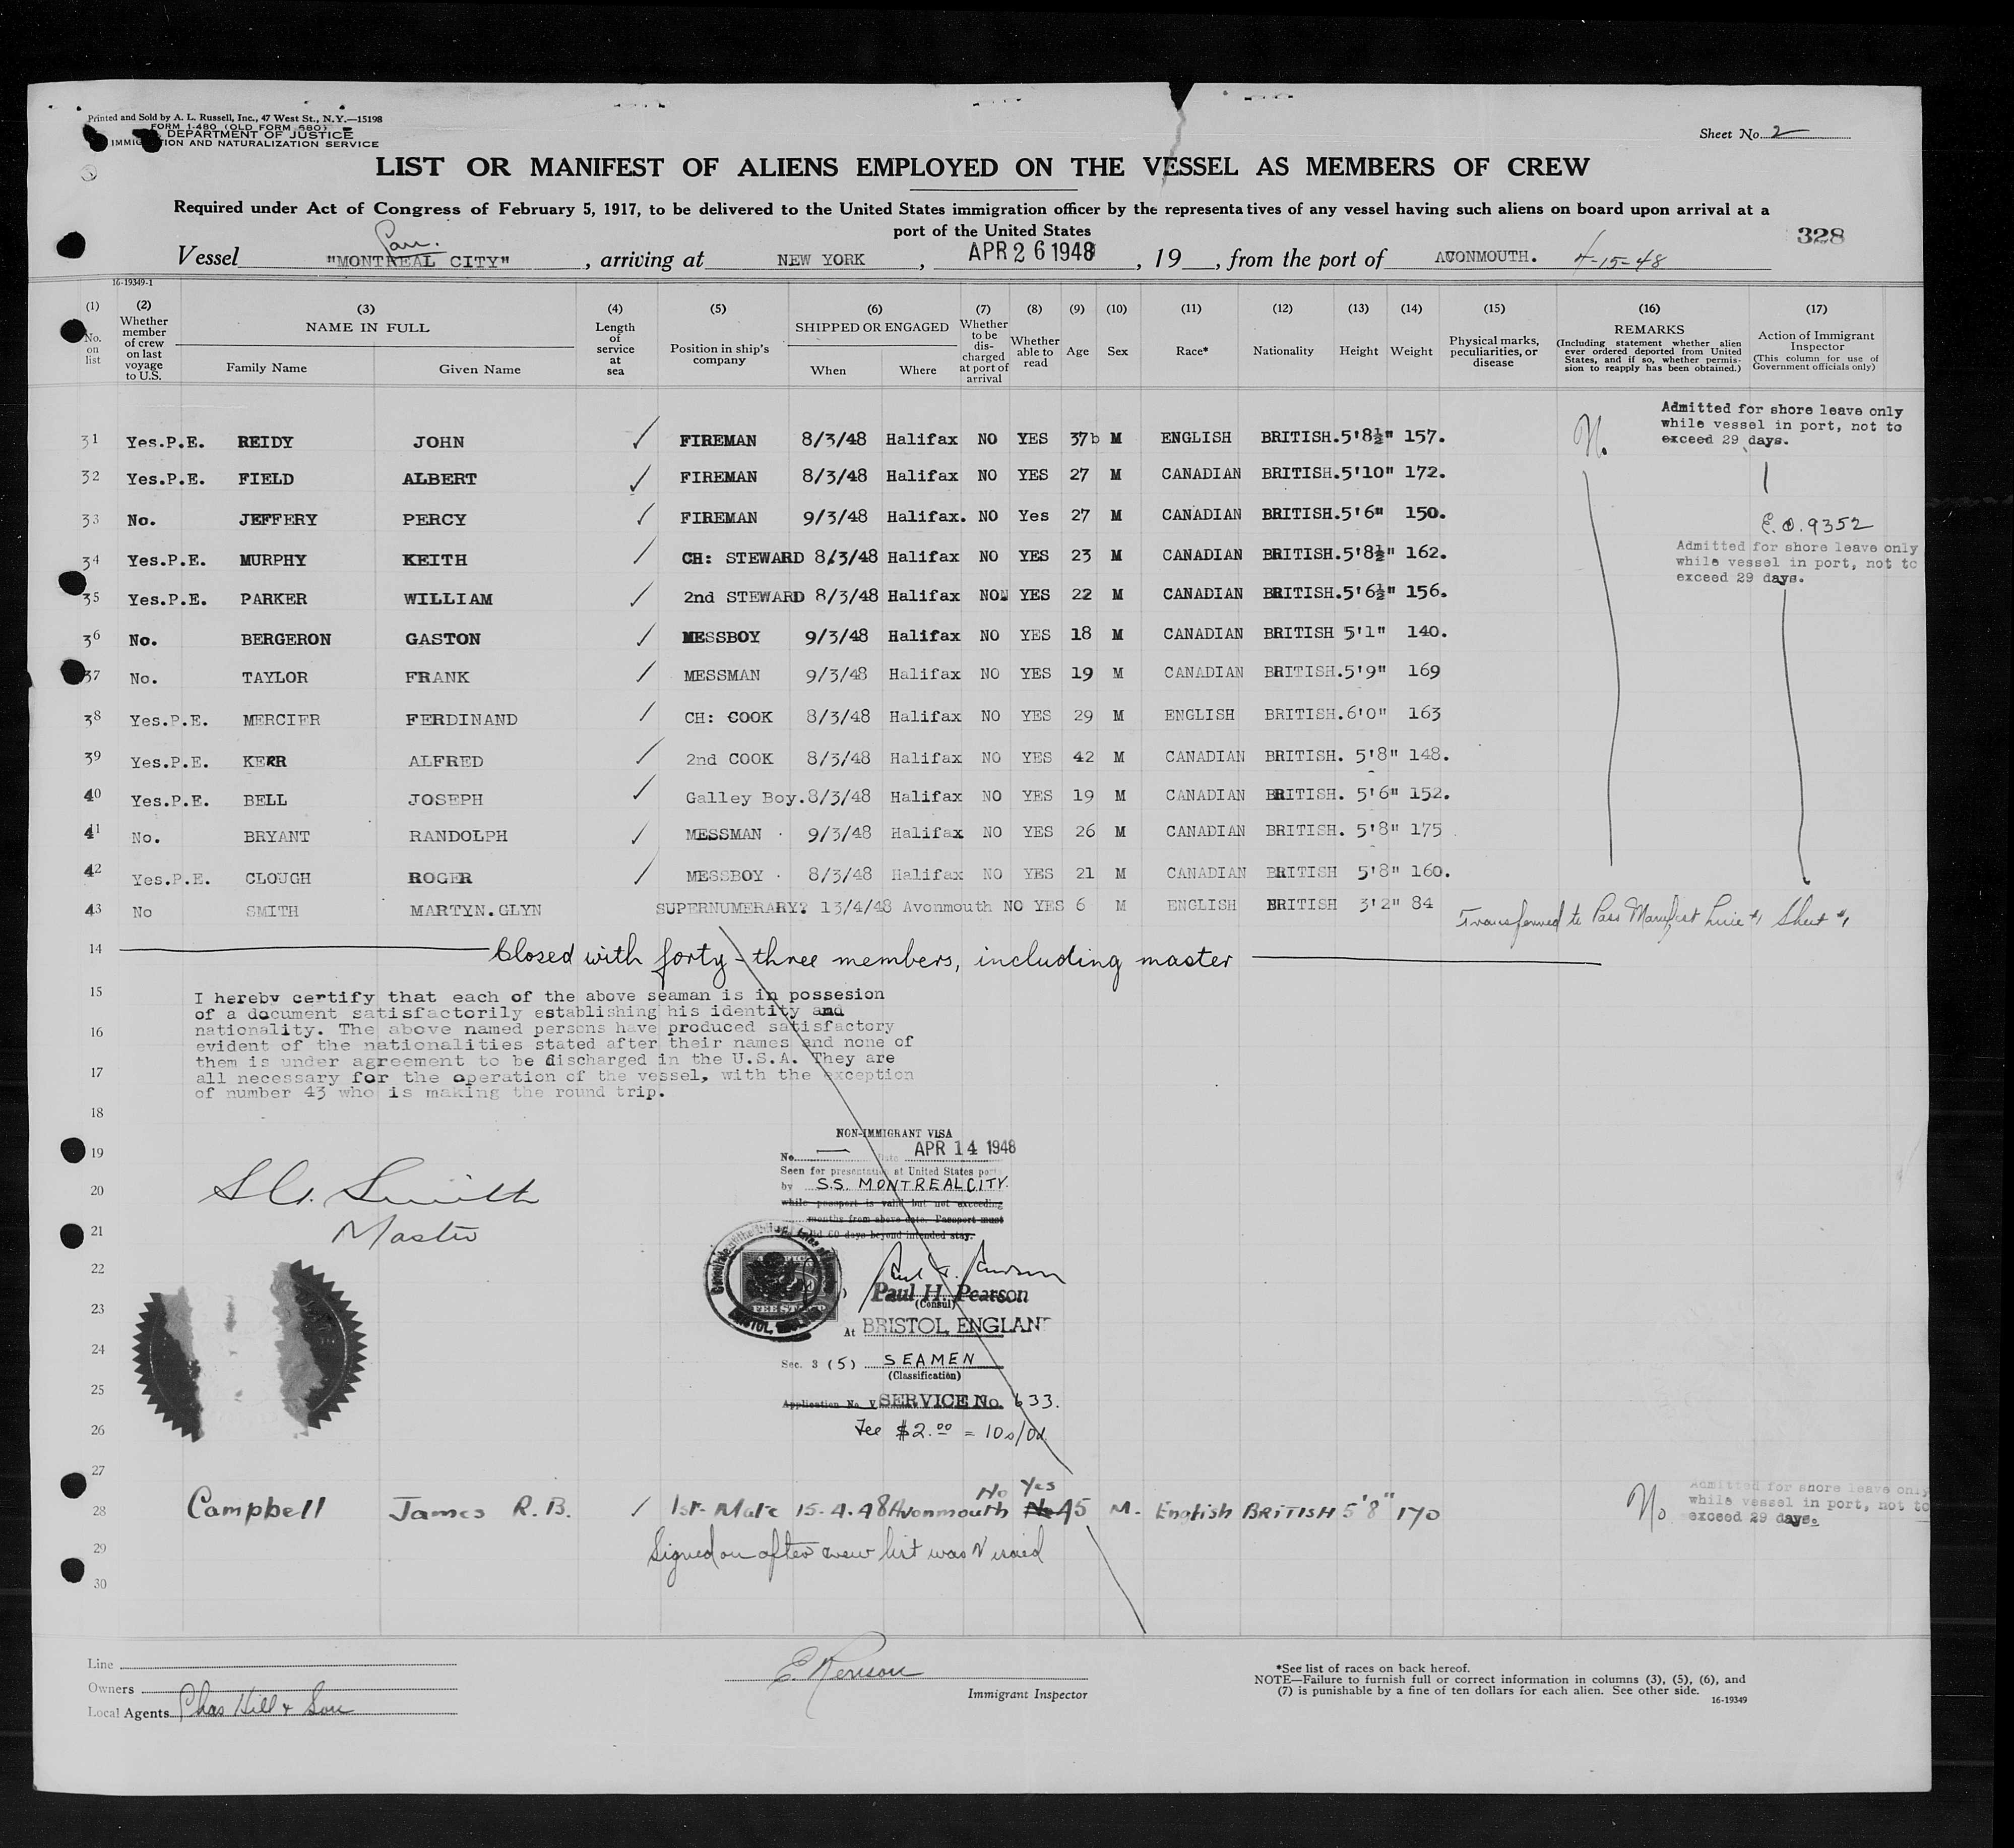 Printed and Sold by A. L. Russell, Inc., 47 West St., N.Y.—15198
FORM I-480 (OLD FORM 680)
DEPARTMENT OF JUSTICE
IMMIGRATION AND NATURALIZATION SERVICE
Sheet No. 2
LIST OR MANIFEST OF ALIENS EMPLOYED ON THE VESSEL AS MEMBERS OF CREW
Required under Act of Congress of February 5, 1917, to be delivered to the United States immigration officer by the representatives of any vessel having such aliens on board upon arrival at a
port of the United States
328
Vessel "MONTREAL CITY", arriving at NEW YORK, APR 26 1948, 19, from the port of AVONMOUTH. 4-15-48
16-19349-1
(1) No. on list
(2) Whether member of crew on last voyage to U.S.
(3) NAME IN FULL
Family Name Given Name
(4) Length of service at sea
(5) Position in ship's company
(6) SHIPPED OR ENGAGED
When Where
(7) Whether to be discharged at port of arrival
(8) Whether able to read
(9) Age
(10) Sex
(11) Race*
(12) Nationality
(13) Height
(14) Weight
(15) Physical marks, peculiarities, or disease
(16) REMARKS
(Including statement whether alien ever ordered deported from United States, and if so, whether permission to reapply has been obtained.)
(17) Action of Immigrant Inspector
(This column for use of Government officials only)
Admitted for shore leave only
while vessel in port, not to
exceed 29 days.
31 Yes.P.E. REIDY JOHN FIREMAN 8/3/48 Halifax NO YES 37b M ENGLISH BRITISH. 5'8½" 157. No.
32 Yes.P.E. FIELD ALBERT FIREMAN 8/3/48 Halifax NO YES 27 M CANADIAN BRITISH. 5'10" 172.
33 No. JEFFERY PERCY FIREMAN 9/3/48 Halifax. NO Yes 27 M CANADIAN BRITISH. 5'6" 150. E.O. 9352
Admitted for shore leave only
while vessel in port, not to
exceed 29 days.
34 Yes.P.E. MURPHY KEITH CH: STEWARD 8/3/48 Halifax NO YES 23 M CANADIAN BRITISH. 5'8½" 162.
35 Yes.P.E. PARKER WILLIAM 2nd STEWARD 8/3/48 Halifax NO YES 22 M CANADIAN BRITISH. 5'6½" 156.
36 No. BERGERON GASTON MESSBOY 9/3/48 Halifax NO YES 18 M CANADIAN BRITISH 5'1" 140.
37 No. TAYLOR FRANK MESSMAN 9/3/48 Halifax NO YES 19 M CANADIAN BRITISH. 5'9" 169
38 Yes.P.E. MERCIER FERDINAND CH: COOK 8/3/48 Halifax NO YES 29 M ENGLISH BRITISH. 6'0" 163
39 Yes.P.E. KERR ALFRED 2nd COOK 8/3/48 Halifax NO YES 42 M CANADIAN BRITISH. 5'8" 148.
40 Yes.P.E. BELL JOSEPH Galley Boy. 8/3/48 Halifax NO YES 19 M CANADIAN BRITISH. 5'6" 152.
41 No. BRYANT RANDOLPH MESSMAN 9/3/48 Halifax NO YES 26 M CANADIAN BRITISH. 5'8" 175
42 Yes.P.E. CLOUGH ROGER MESSBOY 8/3/48 Halifax NO YES 21 M CANADIAN BRITISH 5'8" 160.
43 No SMITH MARTYN.GLYN SUPERNUMERARY? 13/4/48 Avonmouth NO YES 6 M ENGLISH BRITISH 3'2" 84 Transferred to Pass Manifest Line #1 Sheet #1
14 Closed with forty-three members, including master
15
I hereby certify that each of the above seaman is in possesion
of a document satisfactorily establishing his identity and
16
nationality. The above named persons have produced satisfactory
evident of the nationalities stated after their names and none of
them is under agreement to be discharged in the U.S.A. They are
17
all necessary for the operation of the vessel, with the exception
of number 43 who is making the round trip.
18
NON-IMMIGRANT VISA
19
No. — Date APR 14 1948
Seen for presentation at United States ports
20
by S.S. MONTREAL CITY.
while passport is valid but not exceeding
months from above date. Passport must
valid 60 days beyond intended stay.
Smith
Master
21
22
FEE STAMP
BRISTOL, ENGLAND
23
Paul H. Pearson
(Consul)
At BRISTOL, ENGLAND
24
Sec. 3 (5) SEAMEN
(Classification)
25
Application No. V SERVICE No. 633.
26
Fee $2.00 = 10s/0d
27
28 Campbell James R.B. 1st. Mate 15-4-48 Avonmouth No Yes No 45 M. English BRITISH 5'8" 170 No
Admitted for shore leave only
while vessel in port, not to
exceed 29 days.
29 Signed on after crew list was Visaed
30
Line
Owners
Local Agents Chas Hill & Son
Immigrant Inspector
*See list of races on back hereof.
NOTE—Failure to furnish full or correct information in columns (3), (5), (6), and
(7) is punishable by a fine of ten dollars for each alien. See other side.
16-19349